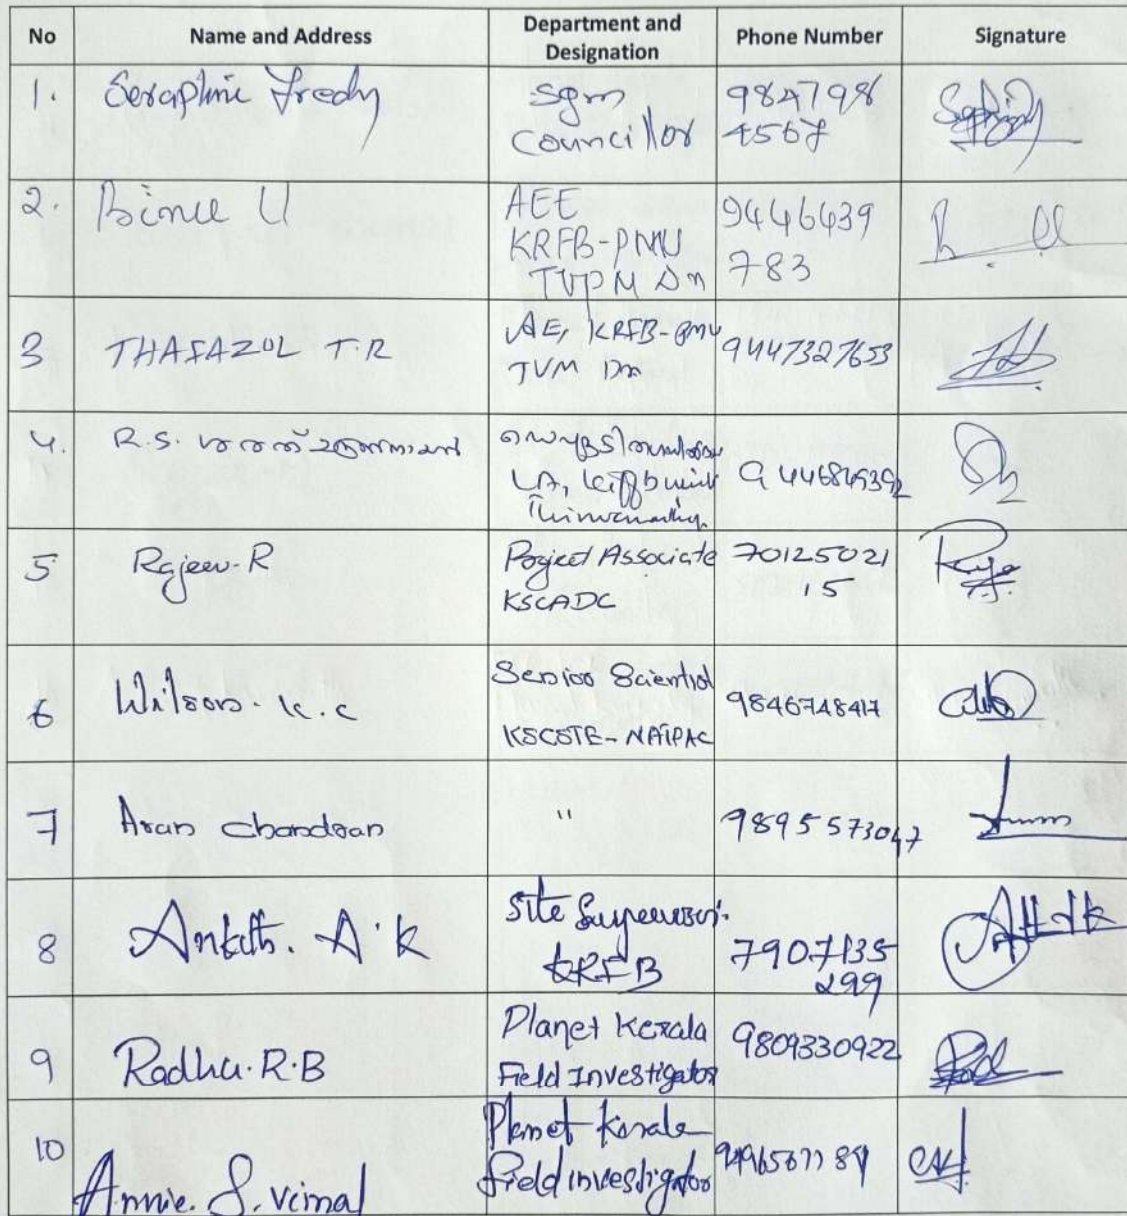 No Name and Address Department and Designation Phone Number Signature
1. Seraphine Fredy Sgm Councillor 984798 4567
2. Bince U AEE KRFB-PMU TVPM Dn 9446439 783
3 THAFAZUL T.R AE, KRFB-PMU TVM Dn 9447327653
4. R.S. LA,
5 Rajeev. R Project Associate KSCADC 70125021 15
6 Wilson. K.C Senior Scientist KSCSTE-NATPAC 9846748417
7 Arun Chandran " 9895573047
8 Ankith. A.K Site Supervisor. KRFB 7907135 299
9 Radhu.R.B Planet Kerala Field Investigator 9809330922
10 Annie. S. Vimal Planet Kerala Field investigator